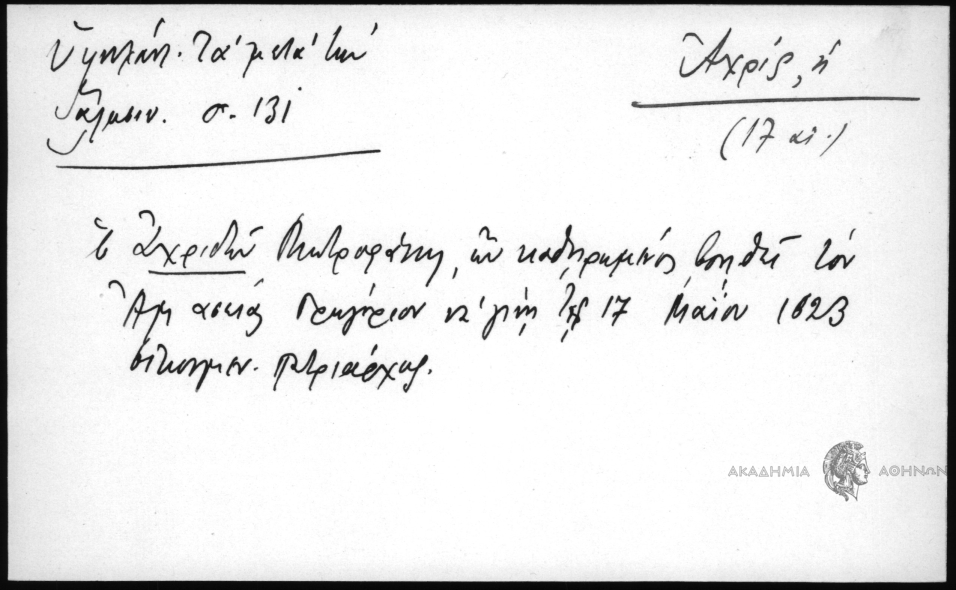 Ὑψηλάντ. Τὰ μετὰ τὴν
Ἅλωσιν. σ. 131
Ἀχρίς, ἡ
(17 αἰ.)
ὁ Ἀχριδῶν Μητροφάνης, ὢν καθῃρημένος βοηθεῖ τὸν
Ἀμασείας Γρηγόριον νὰ γίνῃ τῇ 17 Μαΐου 1623
οἰκουμεν. πατριάρχης.
ΑΚΑΔΗΜΙΑ ΑΘΗΝΩΝ